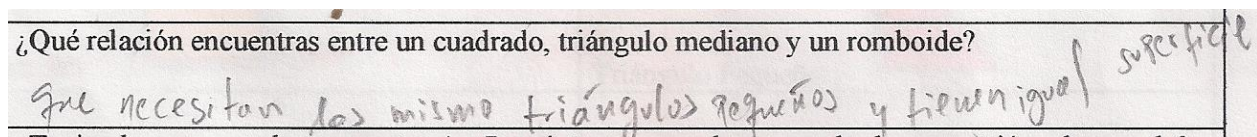 ¿Qué relación encuentras entre un cuadrado, triángulo mediano y un romboide?
que necesitan los mismo triángulos pequeños y tienen igual superficie